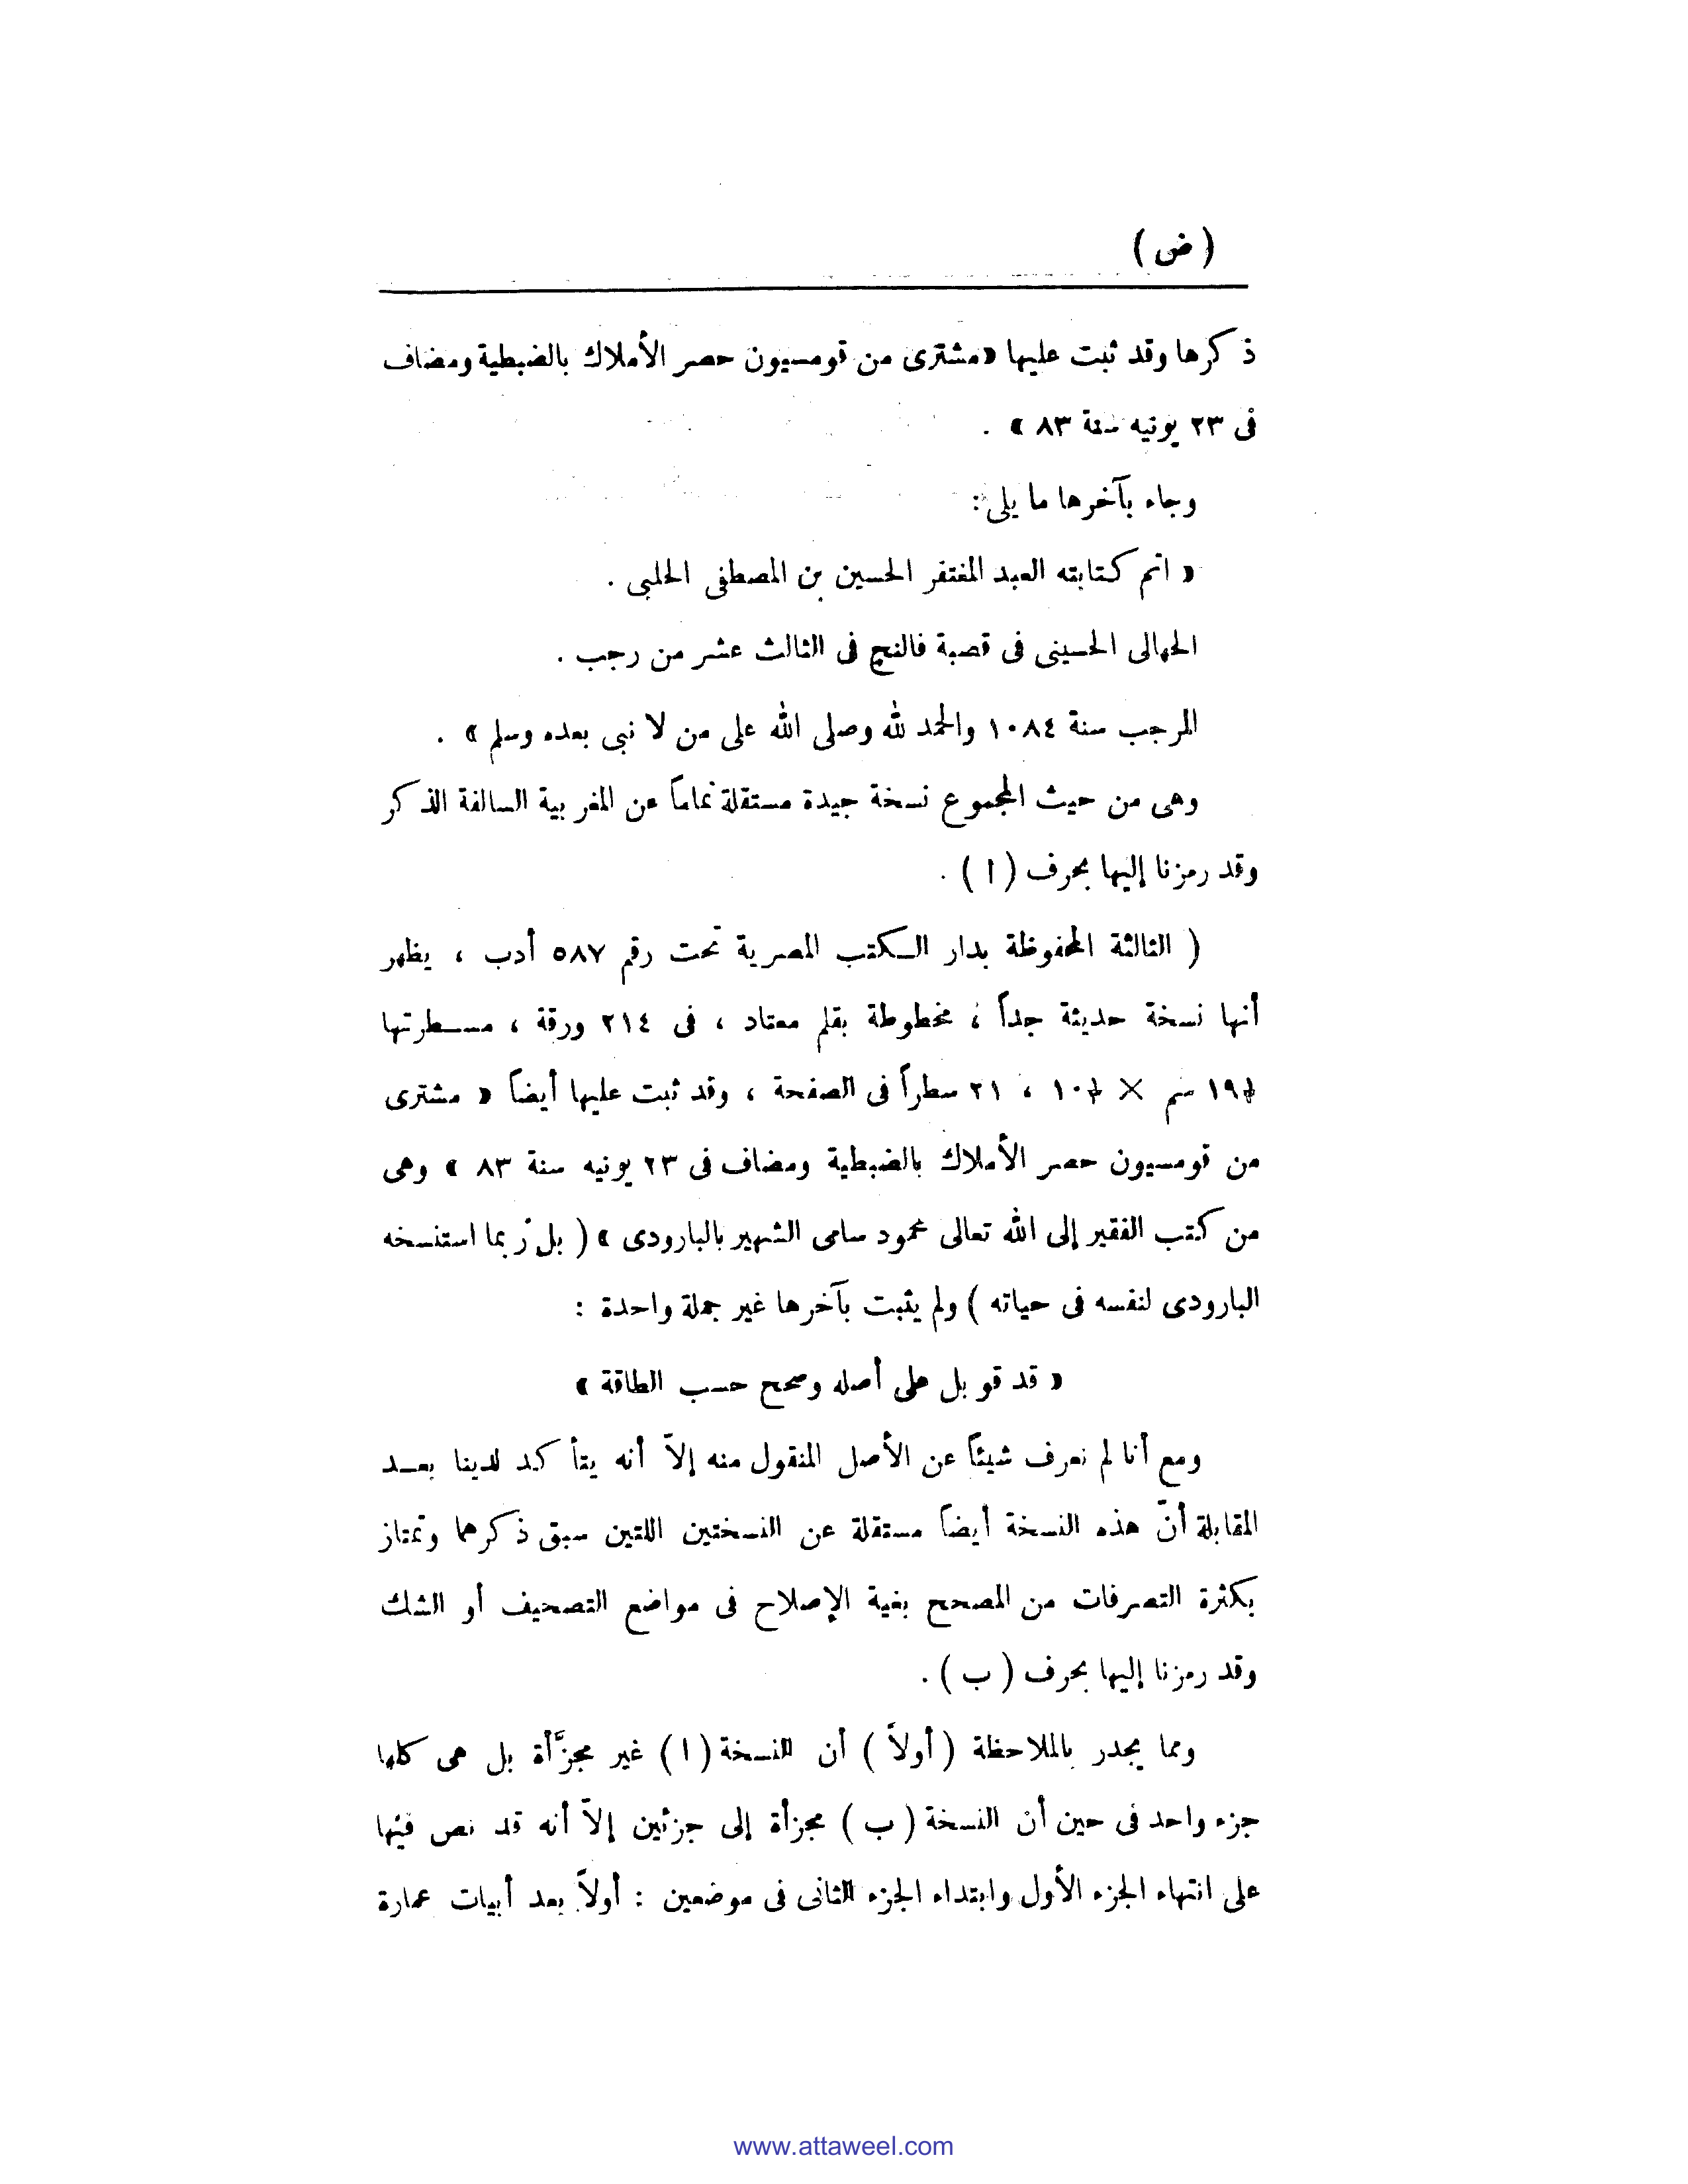 ( ض )
ذكرها وقد ثبت عليها « مشترى من قومسيون حصر الأملاك بالضبطية ومضاف
فى ٢٣ يونيه سنة ٨٣ » .
وجاء بآخرها ما يلى :
« اتم كتابته العبد المفتقر الحسين بن المصطفى الحلبى .
الحسينى فى قصبة فى الثالث عشر من رجب .
المرجب سنة ١٠٨٤ والحمد لله وصلى الله على من لا نبى بعده وسلم » .
وهى من حيث المجموع نسخة جيدة مستقلة تماماً عن المغربية السالفة الذكر
وقد رمزنا إليها بحرف ( ا ) .
( الثالثة المحفوظة بدار الكتب المصرية تحت رقم ٥٨٧ أدب ، يظهر
أنها نسخة حديثة جداً ، مخطوطة بقلم معتاد ، فى ٢١٤ ورقة ، مسطرتها
١٩ سم × ١٠ ، ٢١ سطراً فى الصفحة ، وقد ثبت عليها أيضاً « مشترى
من قومسيون حصر الأملاك بالضبطية ومضاف فى ٢٣ يونيه سنة ٨٣ » وهى
من كتب الفقير إلى الله تعالى محمود سامى الشهير بالبارودى » ( بل ربما استنسخه
البارودى لنفسه فى حياته ) ولم يثبت بآخرها غير جملة واحدة :
« قد قوبل على أصله وصحح حسب الطاقة »
ومع أنا لم نعرف شيئاً عن الأصل المنقول منه إلاّ أنه يتأكد لدينا بعد
المقابلة أنّ هذه النسخة أيضاً مستقلة عن النسختين اللتين سبق ذكرهما وتمتاز
بكثرة التصرفات من المصحح بغية الإصلاح فى مواضع التصحيف أو الشك
وقد رمزنا إليها بحرف ( ب ) .
ومما يجدر بالملاحظة ( أولاً ) أن النسخة ( ا ) غير مجزَّأة بل هى كلها
جزء واحد فى حين أن النسخة ( ب ) مجزأة إلى جزئين إلاّ أنه قد نص فيها
على انتهاء الجزء الأول وابتداء الجزء الثانى فى موضعين : أولاً بعد أبيات عمارة
www.attaweel.com